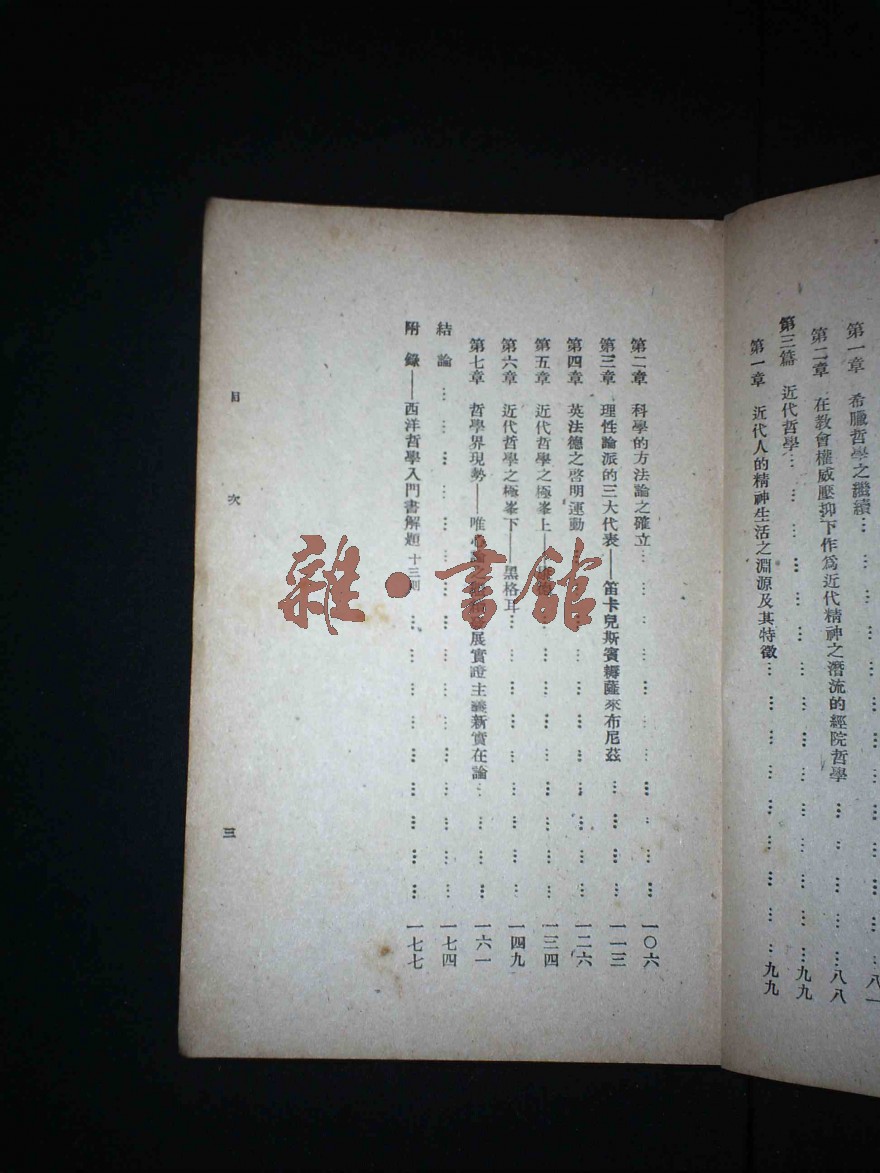 第一章 希臘哲學之繼續………八一
第二章 在教會權威壓抑下作爲近代精神之潛流的經院哲學………八八
第三篇 近代哲學………九九
第一章 近代人的精神生活之淵源及其特徵………九九
第二章 科學的方法論之確立………一〇六
第三章 理性論派的三大代表——笛卡兒斯賓耨薩來布尼茲………一一三
第四章 英法德之啓明運動………一二六
第五章 近代哲學之極峯上——………一三四
第六章 近代哲學之極峯下——黑格耳………一四九
第七章 哲學界現勢——唯心論之展實證主義新實在論………一六一
結論………一七四
附錄——西洋哲學入門書解題 十三則………一七七
目次
三
雜·書館